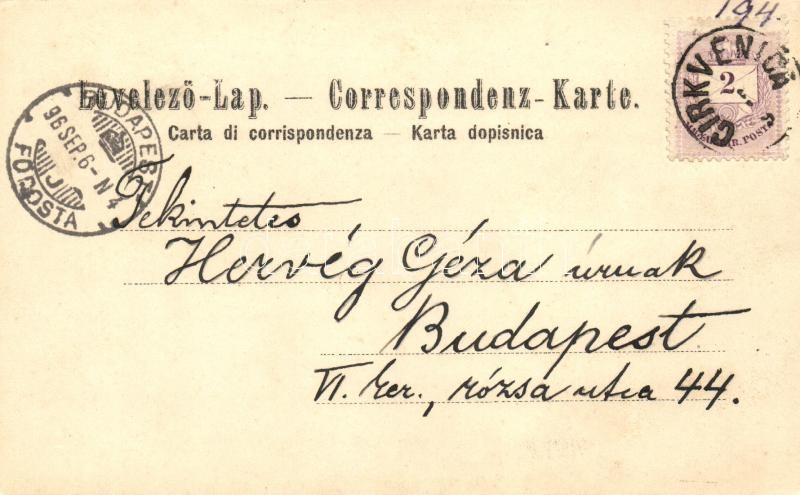 194
CIRKVENICA
2
Levelező-Lap. — Correspondenz-Karte.
Carta di corrispondenza — Karta dopisnica
BUDAPEST
96 SEP. 6 - N 4
FŐPOSTA
Tekintetes
Hervég Géza úrnak
Budapest
VI. ker., rózsa utca 44.